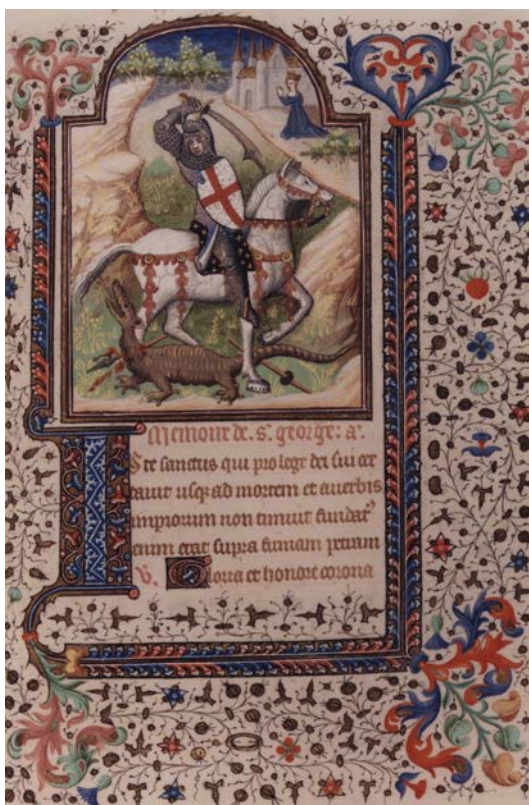 Memoire de. s. george: a.
Iste sanctus qui pro lege dei sui cer
tauit usq; ad mortem et a uerbis
impiorum non timuit fundat9
enim erat supra firmam petram
V. Gloria et honore corona